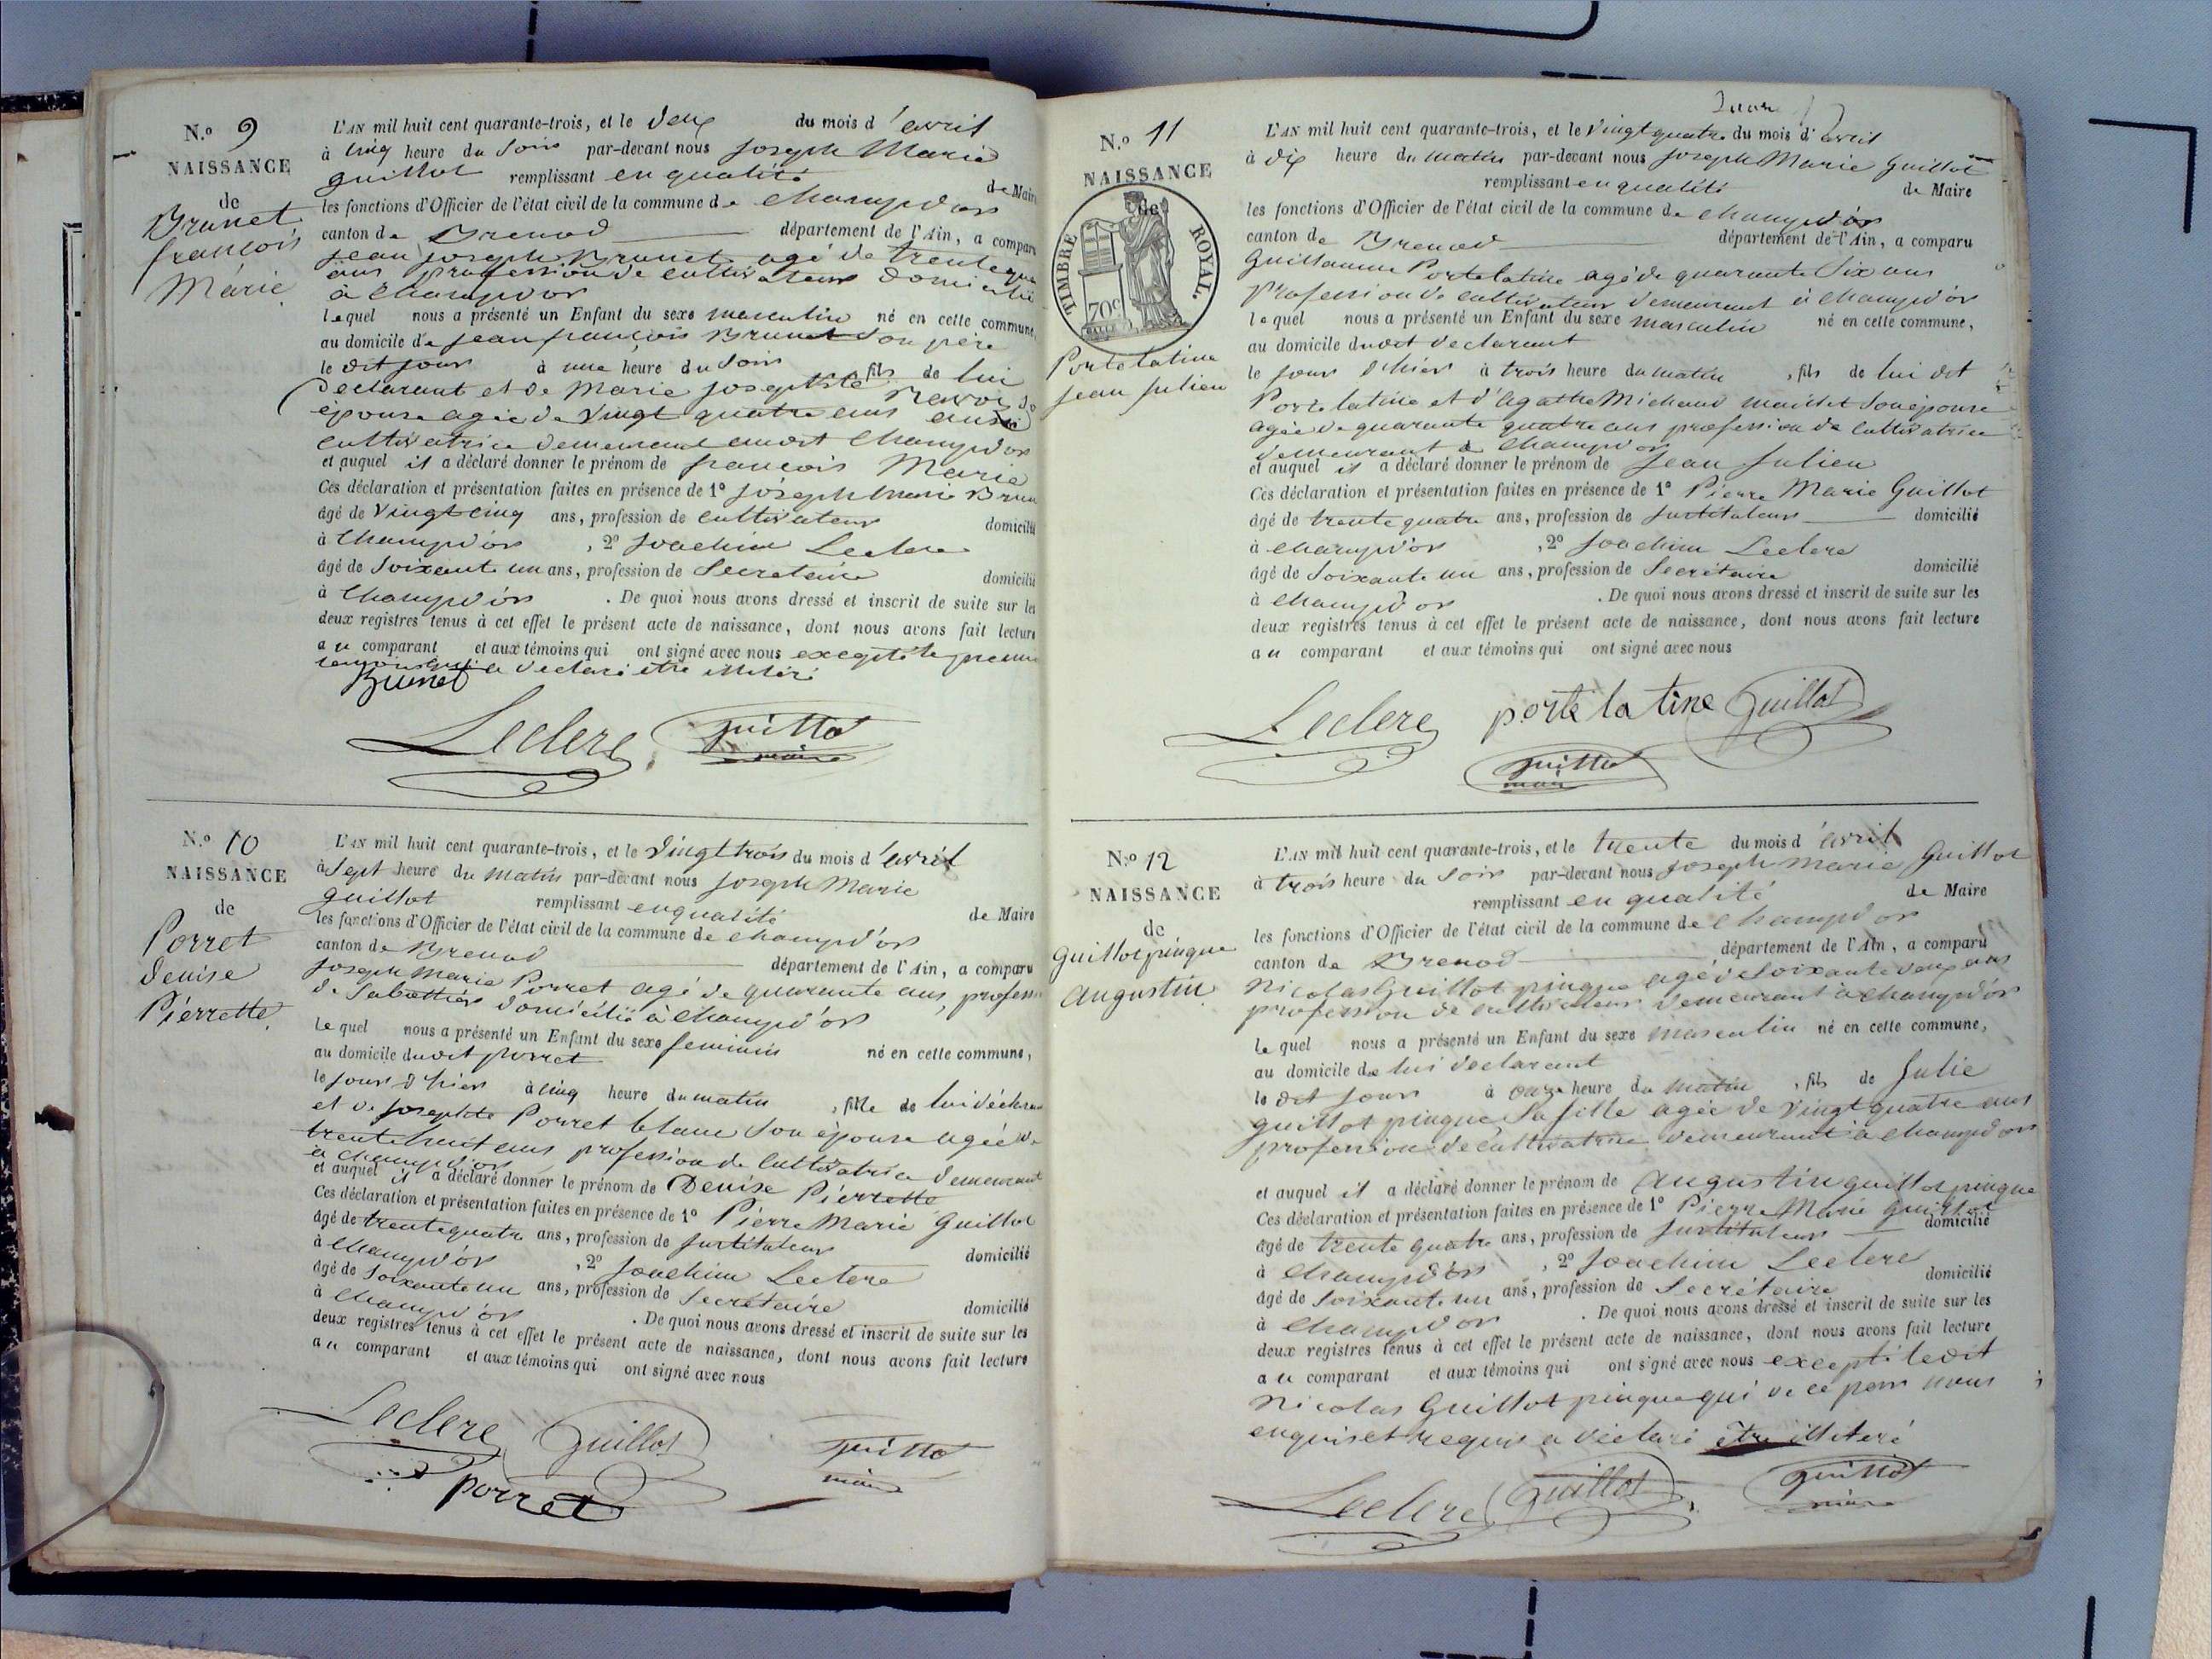 N.º 9
NAISSANCE
de
Brunet
françois
Marie
L'AN mil huit cent quarante-trois, et le deux du mois d'avril
à cinq heure du soir par-devant nous joseph Marie
guillot remplissant en qualité de Maire
les fonctions d'Officier de l'état civil de la commune de champdor
canton de Brenod département de l'Ain, a comparu
jean joseph Brunet agé de trente
ans profession de cultivateur domicilié
à champdor
lequel nous a présenté un Enfant du sexe masculin né en cette commune,
au domicile de jean françois Brunet son père
le dit jour à une heure du soir fils de lui
déclarant et de Marie josephte
épouse agée de vingt quatre ans aussi
cultivatrice demeurant audit champdor
et auquel il a déclaré donner le prénom de françois Marie
Ces déclaration et présentation faites en présence de 1º joseph marie Brun
âgé de vingt cinq ans, profession de cultivateur domicilié
à champdor , 2º joachim Leclerc
âgé de soixante un ans, profession de Secretaire domicilié
à champdor . De quoi nous avons dressé et inscrit de suite sur les
deux registres tenus à cet effet le présent acte de naissance, dont nous avons fait lecture
au comparant et aux témoins qui ont signé avec nous excepté le premier
témoin qui a déclaré etre illitéré
Brunet
Leclerc guillot
maire
N.º 10
NAISSANCE
de
Porret
denise
Pierrette
L'AN mil huit cent quarante-trois, et le vingt trois du mois d'avril
à sept heure du matin par-devant nous joseph Marie
guillot remplissant en qualité de Maire
les fonctions d'Officier de l'état civil de la commune de champd'or
canton de Brenod département de l'Ain, a comparu
joseph marie Porret agé de quarante ans, profession
de Sabottier domicilié à champd'or
lequel nous a présenté un Enfant du sexe feminin né en cette commune,
au domicile dudit porret
le jour d'hier à cinq heure du matin , fille de lui déclarant
et de josephte Porret blanc son épouse agée de
trente huit ans profession de cultivatrice demeurant
à champd'or
et auquel il a déclaré donner le prénom de Denise Pierrette
Ces déclaration et présentation faites en présence de 1º Pierre Marie Guillot
âgé de trente quatre ans, profession de Instituteur domicilié
à champd'or , 2º Joachim Leclerc
âgé de soixante un ans, profession de Secrétaire domicilié
à champd'or . De quoi nous avons dressé et inscrit de suite sur les
deux registres tenus à cet effet le présent acte de naissance, dont nous avons fait lecture
au comparant et aux témoins qui ont signé avec nous
Leclerc Guillot guillot
maire
porret
N.º 11
NAISSANCE
de
TIMBRE ROYAL.
70c
Porte latine
jean julien
L'AN mil huit cent quarante-trois, et le vingt quatre du mois d'avril
à dix heure du matin par-devant nous joseph Marie guillot
remplissant en qualité de Maire
les fonctions d'Officier de l'état civil de la commune de champd'or
canton de Brenod département de l'Ain, a comparu
guillaume Porte latine agé de quarante six ans
Profession de cultivateur demeurant à champd'or
lequel nous a présenté un Enfant du sexe masculin né en cette commune,
au domicile dudit declarant
le jour d'hier à trois heure du matin , fils de lui dit
Porte latine et d'agathe Michaud maillet son épouse
agée de quarante quatre ans profession de cultivatrice
demeurant à champdor
et auquel il a déclaré donner le prénom de jean julien
Ces déclaration et présentation faites en présence de 1º Pierre Marie Guillot
âgé de trente quatre ans, profession de Instituteur domicilié
à champd'or , 2º Joachim Leclerc
âgé de soixante un ans, profession de Secrétaire domicilié
à champdor . De quoi nous avons dressé et inscrit de suite sur les
deux registres tenus à cet effet le présent acte de naissance, dont nous avons fait lecture
au comparant et aux témoins qui ont signé avec nous
Leclerc porte latine Guillot
guillot
maire
N.º 12
NAISSANCE
de
guillot pingue
augustin
L'AN mil huit cent quarante-trois, et le trente du mois d'avril
à trois heure du soir par-devant nous joseph marie Guillot
remplissant en qualité de Maire
les fonctions d'Officier de l'état civil de la commune de champd'or
canton de Brenod département de l'Ain, a comparu
Nicolas Guillot pingue agé de soixante deux ans
profession de cultivateur demeurant à champd'or
lequel nous a présenté un Enfant du sexe masculin né en cette commune,
au domicile de lui declarant
le dit jour à onze heure du matin , fils de Julie
guillot pingue Sa fille agée de vingt quatre ans
profession de cultivatrice demeurant à champdor
et auquel il a déclaré donner le prénom de augustin guillot pingue
Ces déclaration et présentation faites en présence de 1º Pierre Marie guillot
âgé de trente quatre ans, profession de Instituteur domicilié
à champd'or , 2º Joachim Leclerc
âgé de soixante un ans, profession de Secrétaire domicilié
à champdor . De quoi nous avons dressé et inscrit de suite sur les
deux registres tenus à cet effet le présent acte de naissance, dont nous avons fait lecture
au comparant et aux témoins qui ont signé avec nous excepté ledit
Nicolas Guillot pingue qui de ce par nous
enquis et requis a déclaré être illitéré
Leclerc Guillot guillot
maire